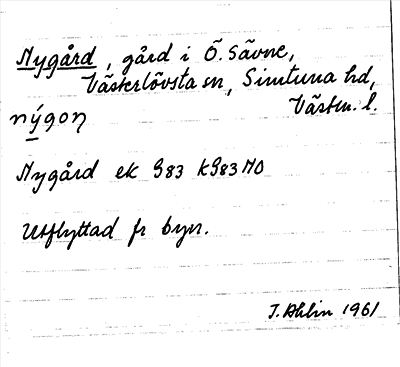 Nygård, gård i Ö. Sävne,
Västerlövsta sn, Simtuna hd,
Västm. l.
nýgoɳ
Nygård ek G83 kG83NO
Utflyttad fr byn.
J. Ahlin 1961